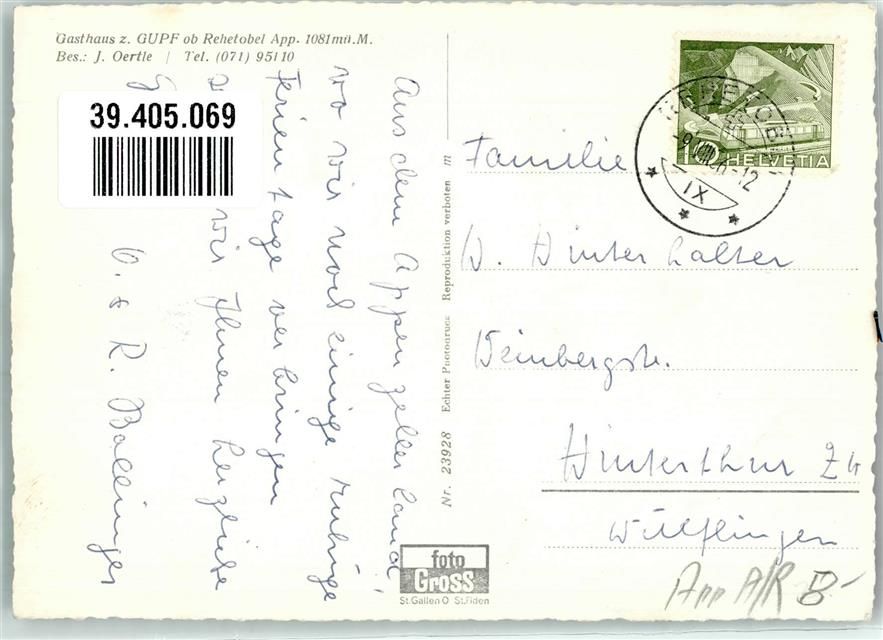 Gasthaus z. GUPF ob Rehetobel App. 1081 m ü. M.
Bes.: J. Oertle | Tel. (071) 95110
39.405.069
Aus dem Appenzellerland,
wo wir noch einige ruhige
Ferientage verbringen
wir Ihnen herzliche
O. & R. Bollinger
Nr. 23928 Echter Photodruck Reproduktion verboten
10 HELVETIA
REHETOBEL
IX
Familie
W. Hinterhalter
Weinbergstr.
Winterthur ZH
Wülflingen
foto
Gross
St. Gallen O St. Fiden
App A/R B-